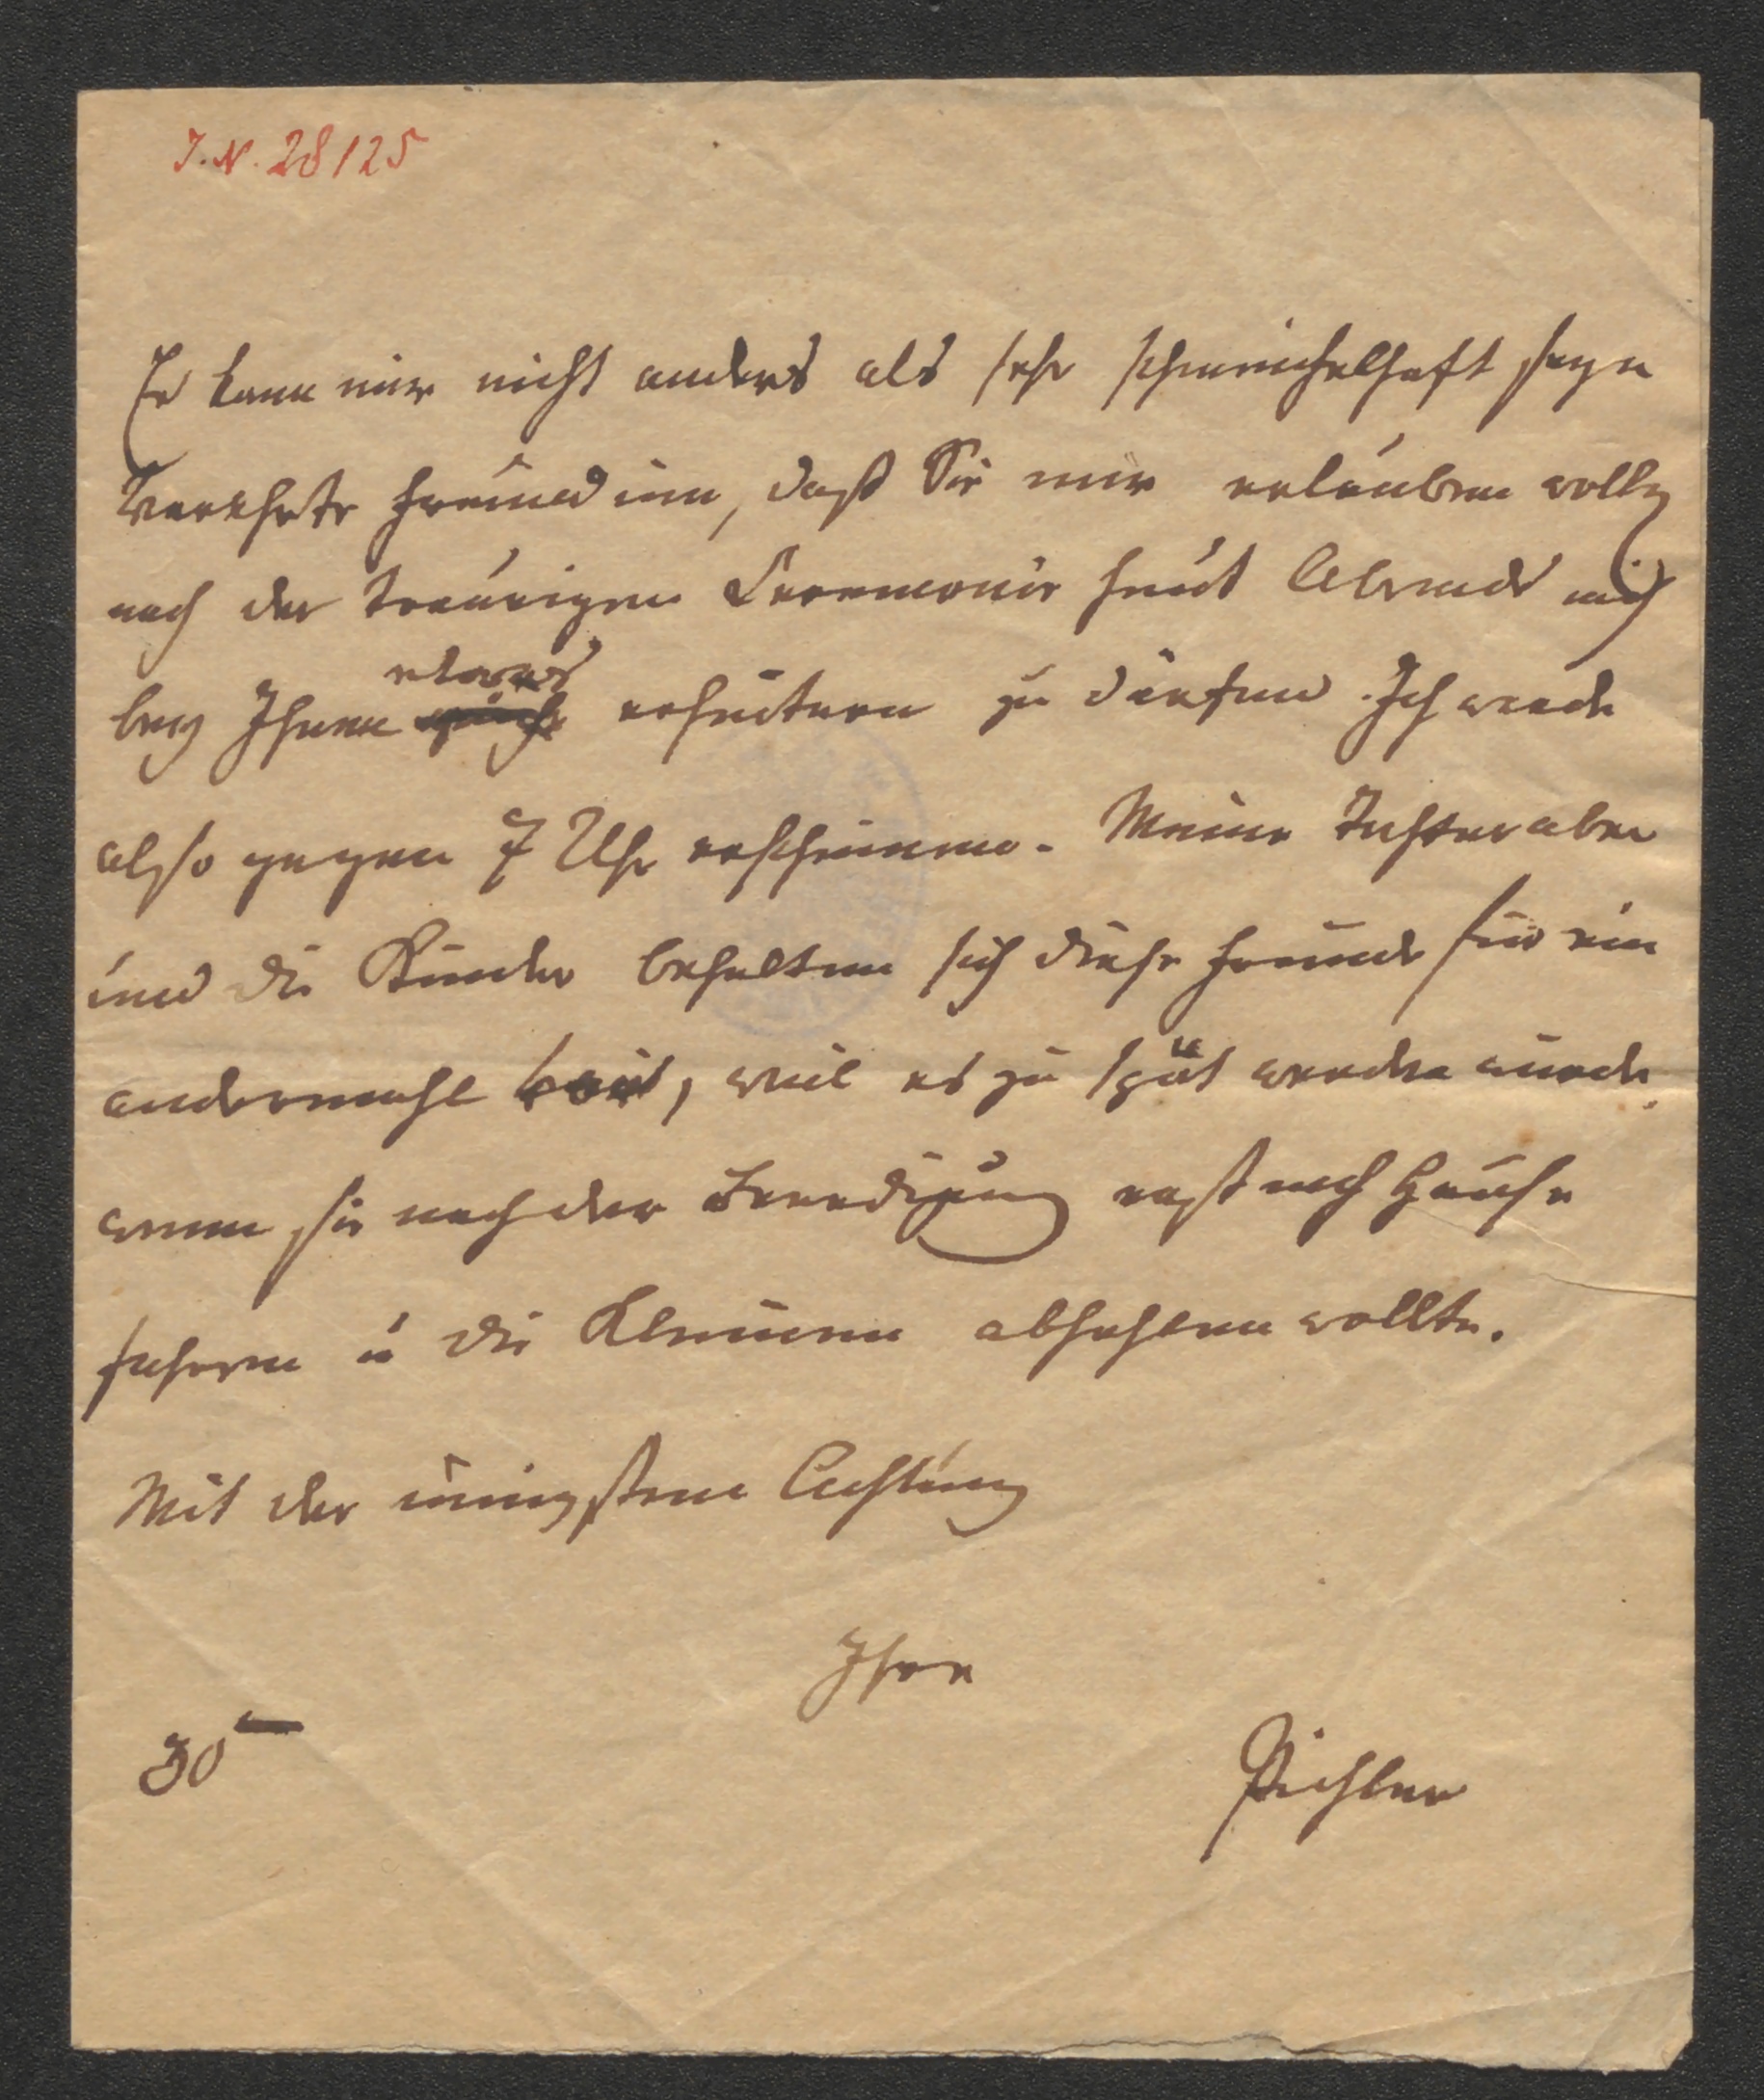 I. N. 28/25
Es kann mir nicht anders als sehr schmeichelhaft seyn
Verehrte Freundinn, daß Sie mir erlauben wollen
nach der traurigen Ceremonie heut Abends mich
bey Ihnen etwas erheitern zu dürfen. Ich werde
also gegen 7 Uhr erscheinen. Meine Tochter aber
und die Kinder behalten sich diese Freude für ein
andermahl vor, weil es zu spät werden würde,
wenn sie nach der Beerdigung erst nach Hause
fahren u die Kleinen abhohlen wollte.
Mit der innigsten Achtung
Ihre
30
Pichler